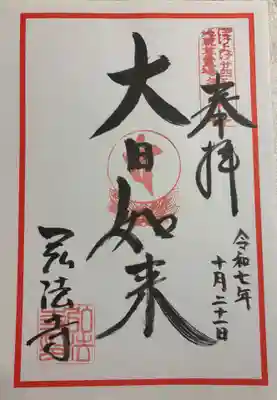 奉拝
令和七年
十月二十一日
大日如来
弘法寺